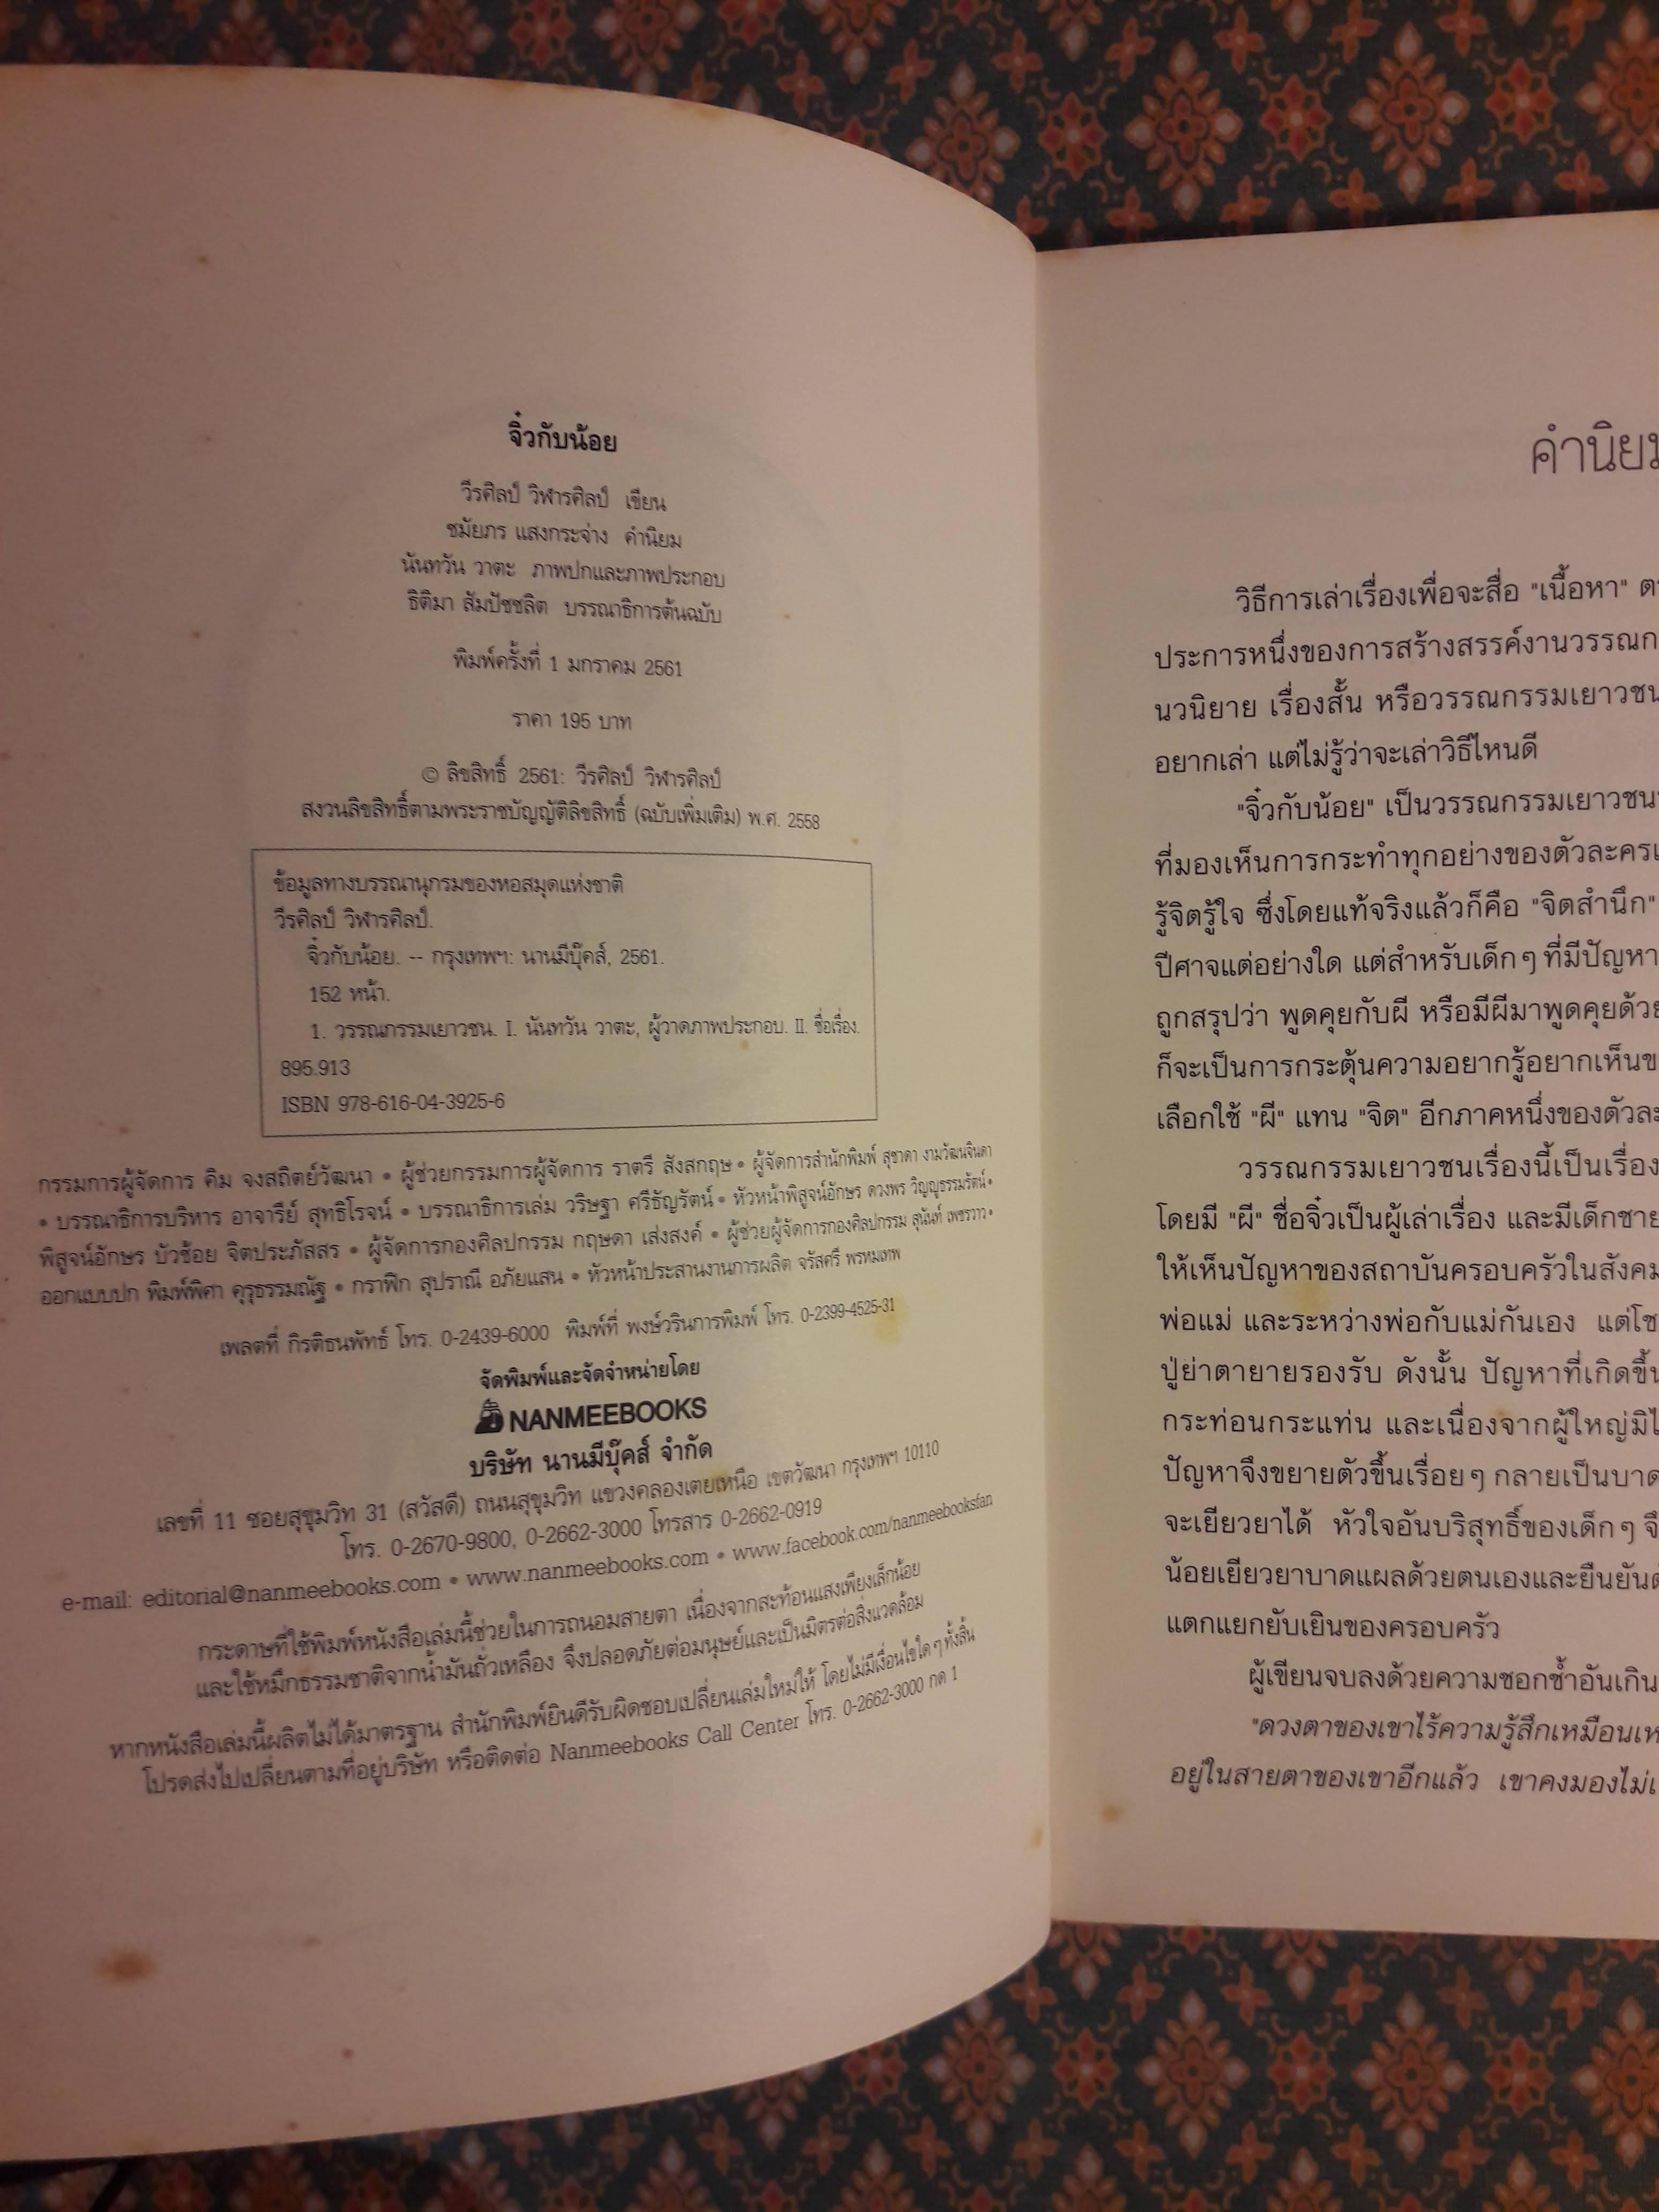 จิ๋วกับน้อย
วีรศิลป์ วิฬารศิลป์ เขียน
ชมัยภร แสงกระจ่าง คำนิยม
นันทวัน วาตะ ภาพปกและภาพประกอบ
ธิติมา สัมปัชชลิต บรรณาธิการต้นฉบับ
พิมพ์ครั้งที่ 1 มกราคม 2561
ราคา 195 บาท
© ลิขสิทธิ์ 2561: วีรศิลป์ วิฬารศิลป์
สงวนลิขสิทธิ์ตามพระราชบัญญัติลิขสิทธิ์ (ฉบับเพิ่มเติม) พ.ศ. 2558
ข้อมูลทางบรรณานุกรมของหอสมุดแห่งชาติ
วีรศิลป์ วิฬารศิลป์.
จิ๋วกับน้อย. -- กรุงเทพฯ: นานมีบุ๊คส์, 2561.
152 หน้า.
1. วรรณกรรมเยาวชน. I. นันทวัน วาตะ, ผู้วาดภาพประกอบ. II. ชื่อเรื่อง.
895.913
ISBN 978-616-04-3925-6
กรรมการผู้จัดการ คิม จงสถิตย์วัฒนา • ผู้ช่วยกรรมการผู้จัดการ ราตรี สังสกฤษ • ผู้จัดการสำนักพิมพ์ สุชาดา งามวัฒนจินดา
• บรรณาธิการบริหาร อาจารีย์ สุทธิโรจน์ • บรรณาธิการเล่ม วริษฐา ศรีธัญรัตน์ • หัวหน้าพิสูจน์อักษร ดวงพร วิญญูธรรมรัตน์ •
พิสูจน์อักษร บัวช้อย จิตประภัสสร • ผู้จัดการกองศิลปกรรม กฤษดา เส่งสงค์ • ผู้ช่วยผู้จัดการกองศิลปกรรม สุนันท์ เพชรวาว •
ออกแบบปก พิมพ์พิศา คุรุธรรมณัฐ • กราฟิก สุปราณี อภัยแสน • หัวหน้าประสานงานการผลิต จรัสศรี พรหมเทพ
เพลตที่ กิรติธนพัทธ์ โทร. 0-2439-6000 พิมพ์ที่ พงษ์วรินการพิมพ์ โทร. 0-2399-4525-31
จัดพิมพ์และจัดจำหน่ายโดย
NANMEEBOOKS
บริษัท นานมีบุ๊คส์ จำกัด
เลขที่ 11 ซอยสุขุมวิท 31 (สวัสดี) ถนนสุขุมวิท แขวงคลองเตยเหนือ เขตวัฒนา กรุงเทพฯ 10110
โทร. 0-2670-9800, 0-2662-3000 โทรสาร 0-2662-0919
e-mail: editorial@nanmeebooks.com • www.nanmeebooks.com • www.facebook.com/nanmeebooksfan
กระดาษที่ใช้พิมพ์หนังสือเล่มนี้ช่วยในการถนอมสายตา เนื่องจากสะท้อนแสงเพียงเล็กน้อย
และใช้หมึกธรรมชาติจากน้ำมันถั่วเหลือง จึงปลอดภัยต่อมนุษย์และเป็นมิตรต่อสิ่งแวดล้อม
หากหนังสือเล่มนี้ผลิตไม่ได้มาตรฐาน สำนักพิมพ์ยินดีรับผิดชอบเปลี่ยนเล่มใหม่ให้ โดยไม่มีเงื่อนไขใดๆ ทั้งสิ้น
โปรดส่งไปเปลี่ยนตามที่อยู่บริษัท หรือติดต่อ Nanmeebooks Call Center โทร. 0-2662-3000 กด 1
คำนิยม
วิธีการเล่าเรื่องเพื่อจะสื่อ "เนื้อหา"
ประการหนึ่งของการสร้างสรรค์งานวรรณก
นวนิยาย เรื่องสั้น หรือวรรณกรรมเยาวชน
อยากเล่า แต่ไม่รู้ว่าจะเล่าวิธีไหนดี
"จิ๋วกับน้อย" เป็นวรรณกรรมเยาวชน
ที่มองเห็นการกระทำทุกอย่างของตัวละคร
รู้จิตรู้ใจ ซึ่งโดยแท้จริงแล้วก็คือ "จิตสำนึก"
ปีศาจแต่อย่างใด แต่สำหรับเด็กๆ ที่มีปัญหา
ถูกสรุปว่า พูดคุยกับผี หรือมีผีมาพูดคุยด้วย
ก็จะเป็นการกระตุ้นความอยากรู้อยากเห็นข
เลือกใช้ "ผี" แทน "จิต" อีกภาคหนึ่งของตัวละ
วรรณกรรมเยาวชนเรื่องนี้เป็นเรื่อง
โดยมี "ผี" ชื่อจิ๋วเป็นผู้เล่าเรื่อง และมีเด็กชาย
ให้เห็นปัญหาของสถาบันครอบครัวในสังคม
พ่อแม่ และระหว่างพ่อกับแม่กันเอง แต่โช
ปู่ย่าตายายรองรับ ดังนั้น ปัญหาที่เกิดขึ้น
กระท่อนกระแท่น และเนื่องจากผู้ใหญ่มิไ
ปัญหาจึงขยายตัวขึ้นเรื่อยๆ กลายเป็นบาด
จะเยียวยาได้ หัวใจอันบริสุทธิ์ของเด็กๆ จึ
น้อยเยียวยาบาดแผลด้วยตนเองและยืนยัน
แตกแยกยับเยินของครอบครัว
ผู้เขียนจบลงด้วยความชอกช้ำอันเกิน
"ดวงตาของเขาไร้ความรู้สึกเหมือนเห
อยู่ในสายตาของเขาอีกแล้ว เขาคงมองไม่เ